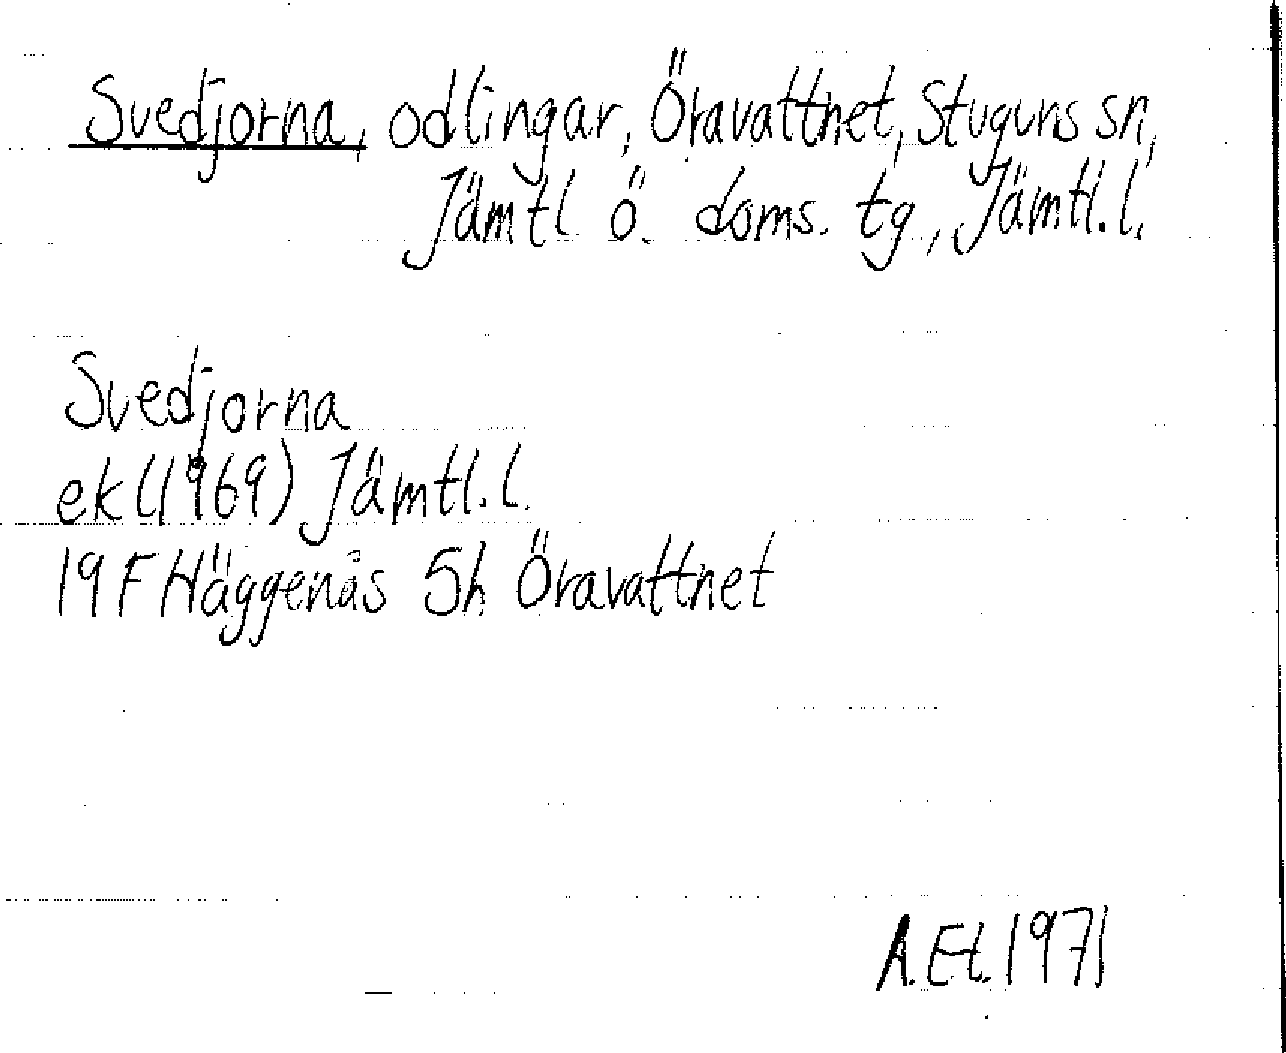 Svedjorna, odlingar, Öravattnet, Stuguns sn,
Jämtl ö. doms. tg, Jämtl. l.
Svedjorna
ek (1969) Jämtl. l.
19 F Häggenås 5h Öravattnet
A. Et. 1971